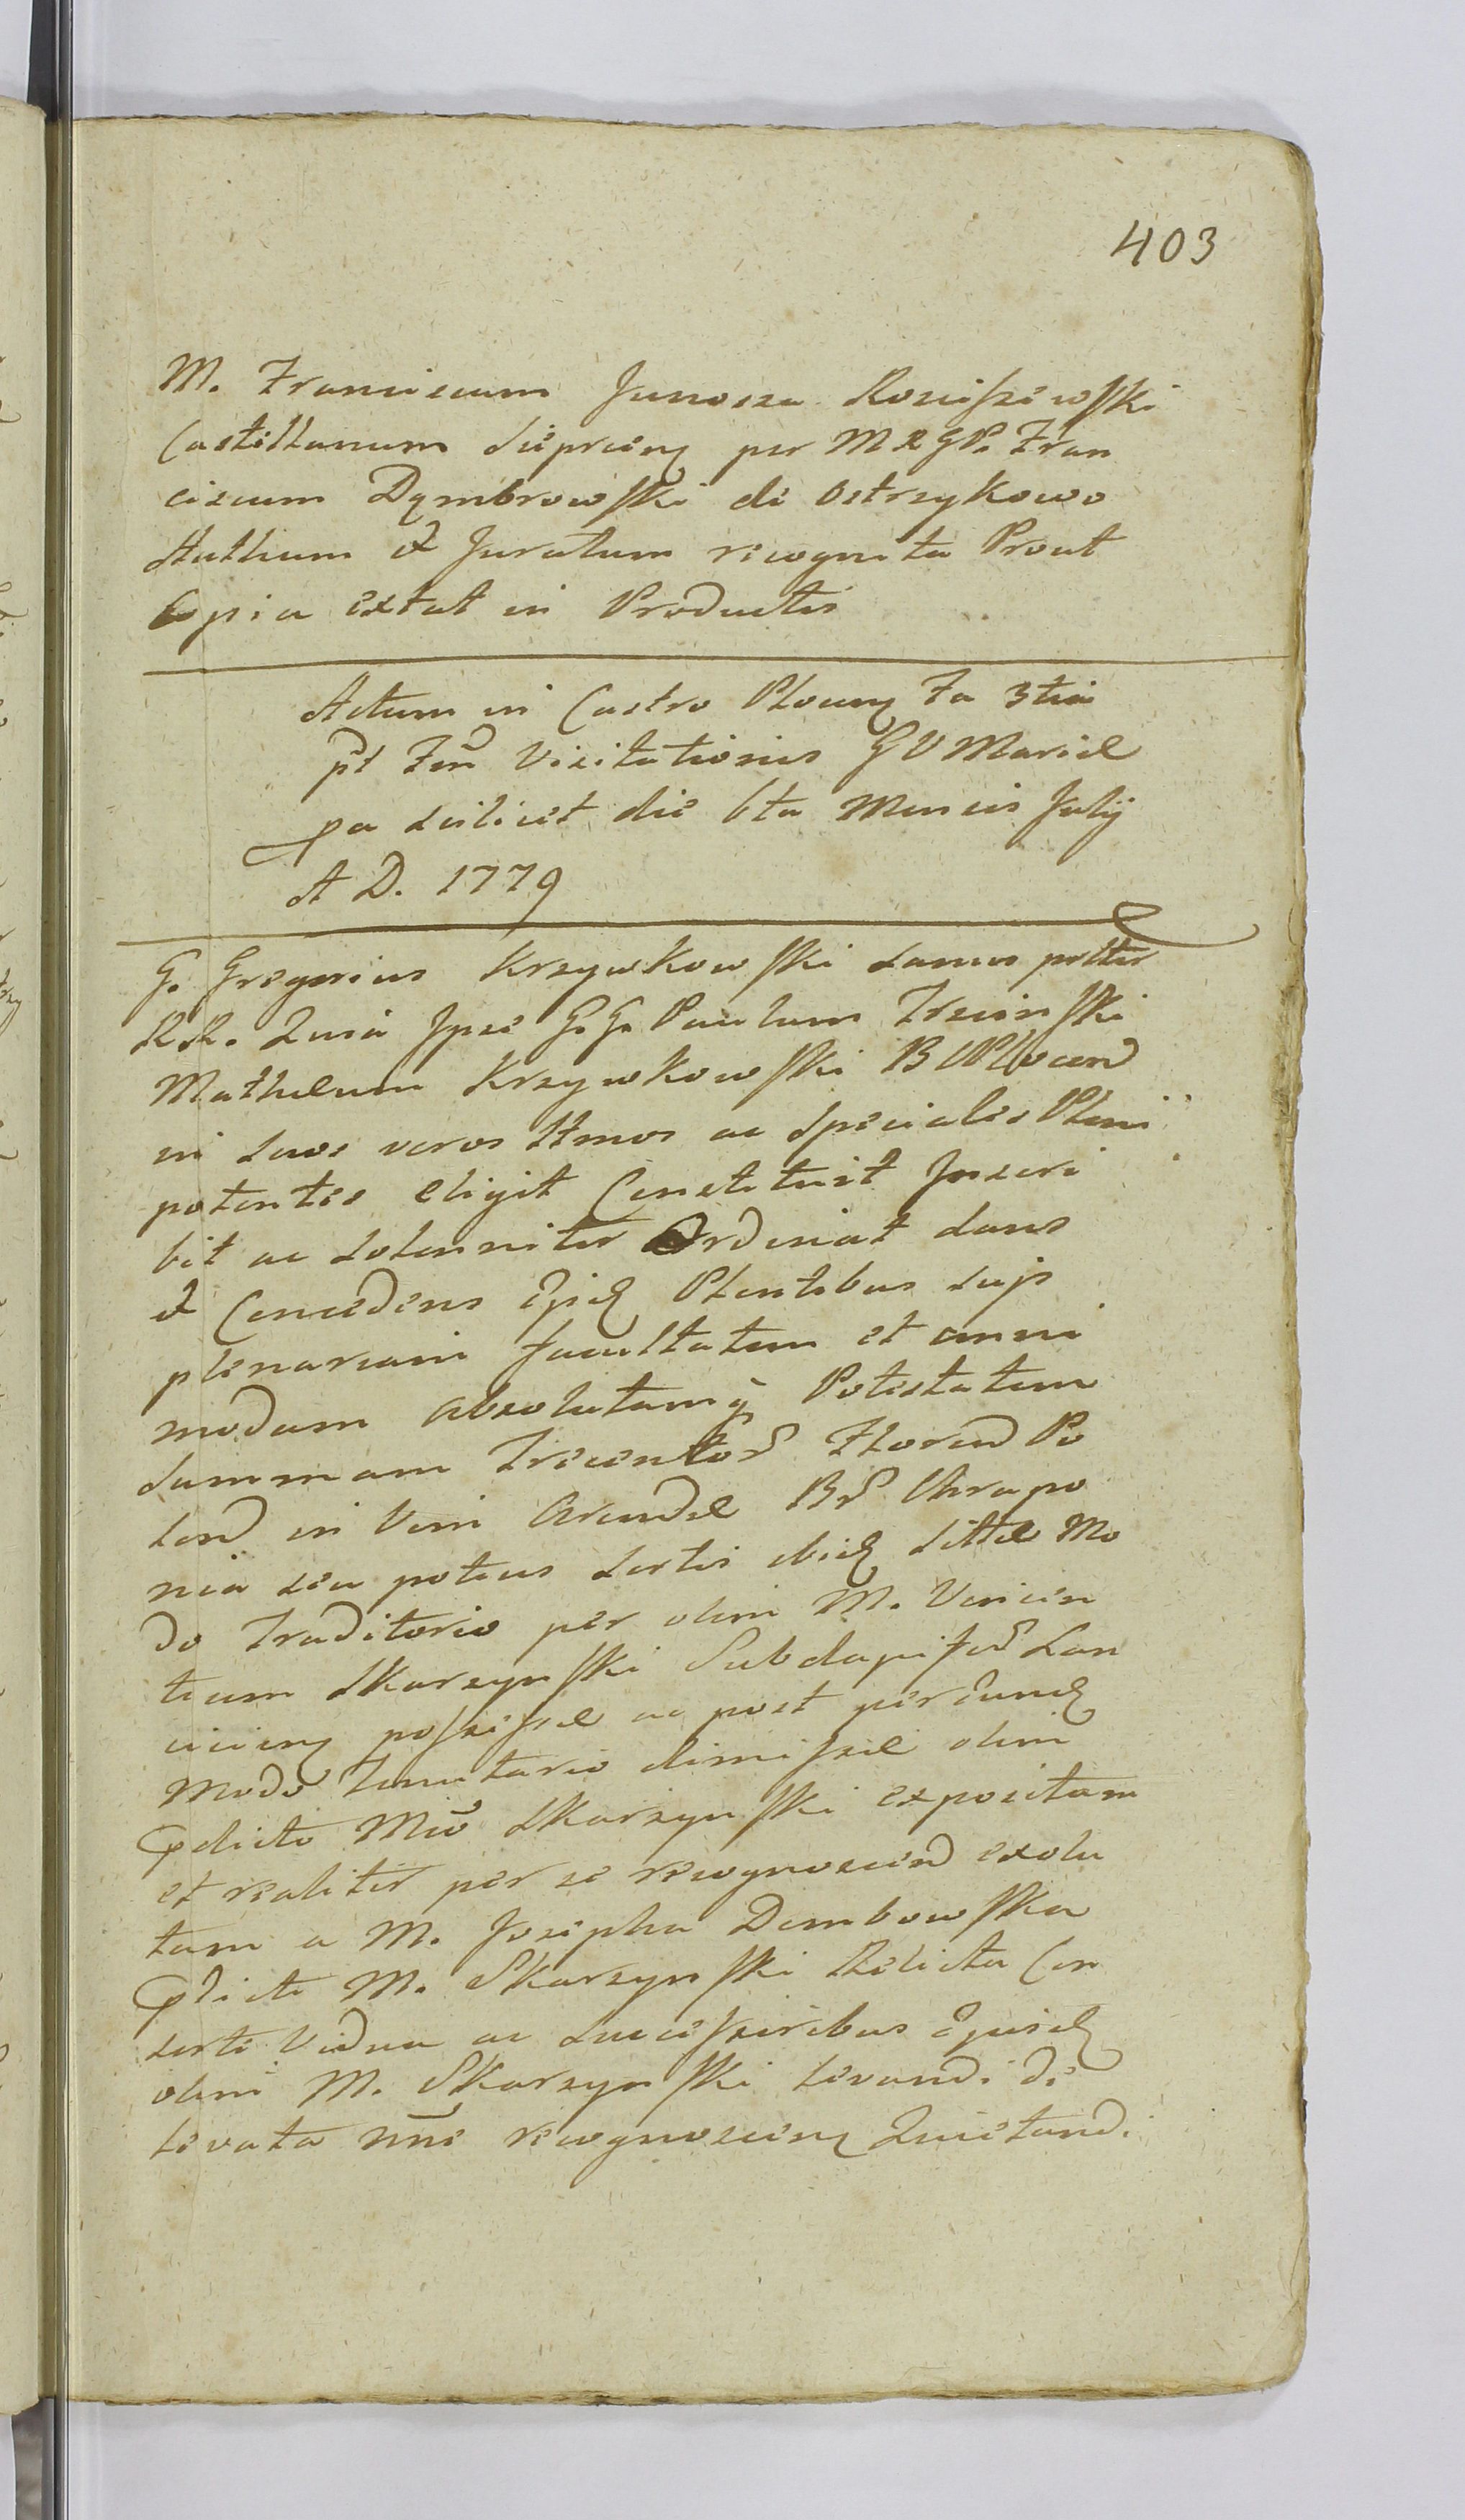 403
M. Franciscum Junosza Rosciszewski
Castellanum Sieprcens per M R G P. Fran
ciscum Dąmbrowski de Ostrzykowo
Authum et Juratum recognita Prout
Copia extat in Productis
Actum in Castro Plocens Fa 3tia
pt Fem Visitationis G V Mariæ
pa scilicet die 6ta Mensis Julij
A D. 1779
G. Gregorius Krzywkowski sanus pltter
RR. Quia Ipse G. G. Paulum Trzcinski
Mathæum Krzywkowski B Plocen
in suos veros ltmos ac speciales Pleni
potentes eligit Constituit Inscri
bit ac solenniter Ordinat dans
et Concedens Eisd Plentibus suis
plenariam facultatem et omni
modam absolutamq Potestatem
summam Trecentor Floren Po
lon in Vim Arendæ Br Chrapo
nia seu potius sortis ibid sittæ Mo
do Traditorio per olim M. Vincen
tium Skarzynski Subdapifer Lan
ciciens possessæ ac post per eund
Modo Tenutario dimissæ olim
pdicto Mco Skarzynski expositam
et realiter per se recognoscen exolu
tam a M. Josepha Dembowska
pdicti M. Skarzynski Relicta Con
sorte Vidua ac Successoribus Ejusd
olim M. Skarzynski levandi de
levata nne recognoscens Quietandi